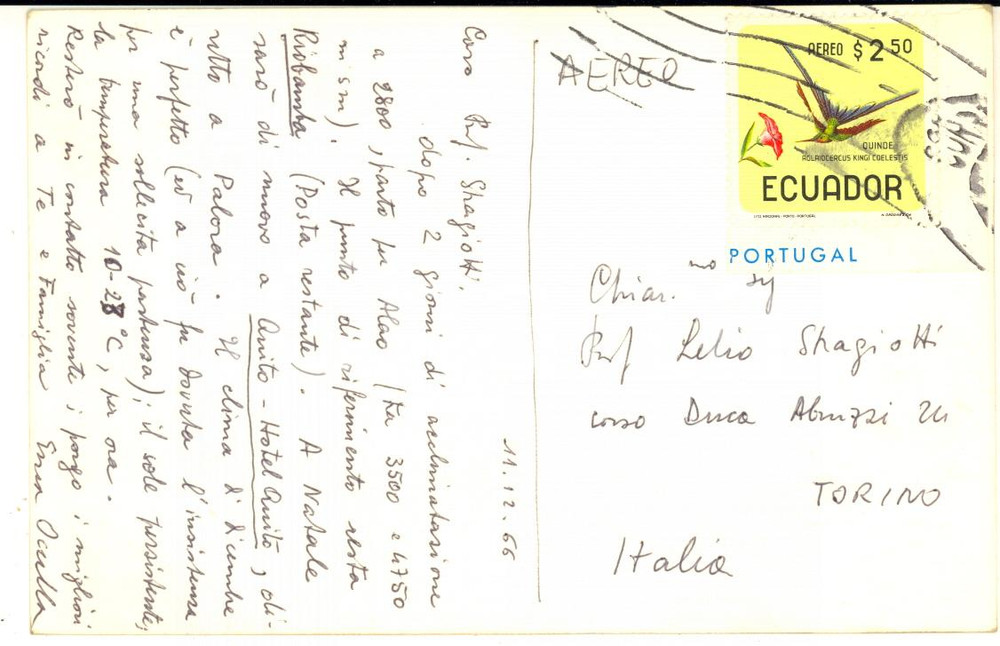 11.12.66
Caro Prof. Stragiotti,
dopo 2 giorni di acclimatazione
a 2800, parto per Alao (tra 3500 e 4750
m s m). Il punto di riferimento resta
Riobamba (Posta restante). A Natale
sarò di nuovo a Quito - Hotel Quito, di-
retto a Palora. Il clima di dicembre
è perfetto (ed a ciò fu dovuta l'insistenza
per una sollecita partenza); il sole persistente;
la temperatura 10-28 °C, per ora.
Resterò in contatto sovente; porgo i migliori
ricordi a Te e Famiglia
AEREO
AEREO $ 2 50
QUINDE
AGLAIOCERCUS KINGI COELESTIS
ECUADOR
PORTUGAL
Chiar.
Prof Lelio Stragiotti
corso Duca Abruzzi 24
TORINO
Italia